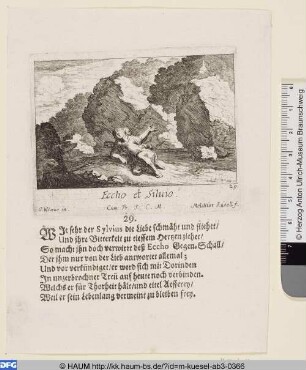 Eccho et Silvio
Cum Pr. S. C. M.
Melchior Küsel f.
29.
Wie sehr der Sylvius die Liebe schmäht und fliehet/
Und ihre Bitterkeit zu tieffem Hertzen ziehet/
So macht ihn doch verwirrt deß Eccho Gegen-Schall/
Der ihm nur von der Lieb antwortet allemal;
Und vor verkündiget/ er werd sich mit Dorinden
In unzerbrochner Treü auf heute noch verbinden.
Welchs er für Thorheit hält/
Weil er sein Lebenlang vermeint zu bleiben frey.
© Herzog Anton Ulrich-Museum Braunschweig
DFG
© HAUM http://kk.haum-bs.de/?id=m-kuesel-ab3-0366